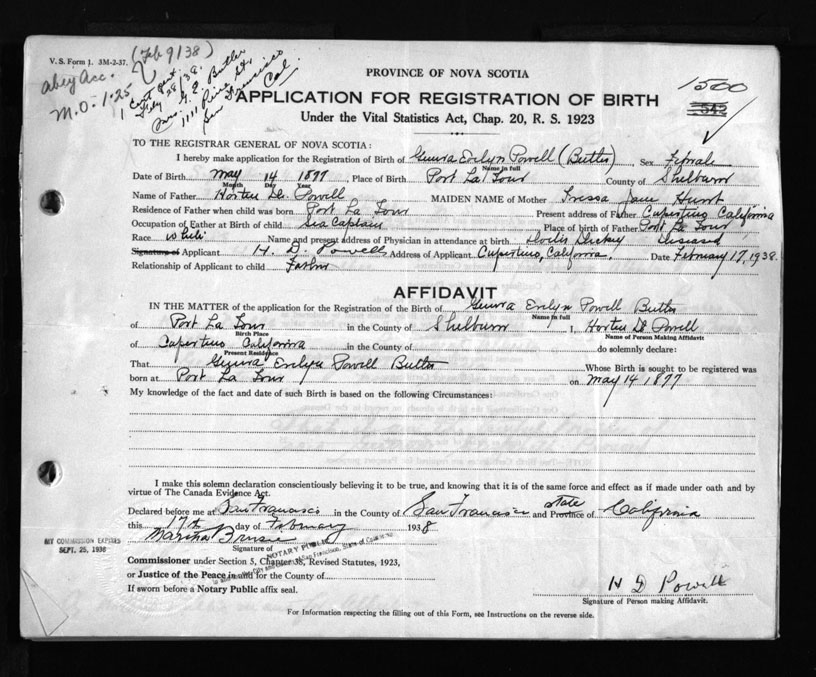 V. S. Form 1. 3M-2-37. (Feb 9/38)
M.O. 1.25
1 Cert
Butler
San Francisco
Cal.
1500
542
PROVINCE OF NOVA SCOTIA
APPLICATION FOR REGISTRATION OF BIRTH
Under the Vital Statistics Act, Chap. 20, R. S. 1923
TO THE REGISTRAR GENERAL OF NOVA SCOTIA:
I hereby make application for the Registration of Birth of Evelyn Powell (Butler), Sex Female
Name in full
Date of Birth May 14 1877, Place of Birth Port La Tour County of Shelburn
Month Day Year
Name of Father D. Powell MAIDEN NAME of Mother Jane Hunt
Residence of Father when child was born Port La Tour Present address of Father Cupertino California
Occupation of Father at Birth of child Sea Captain Place of birth of Father Port La Tour
Race White Name and present address of Physician in attendance at birth Deceased
Signature of Applicant H. D. Powell Address of Applicant Cupertino, California. Date February 17, 1938.
Relationship of Applicant to child Father
AFFIDAVIT
IN THE MATTER of the application for the Registration of Birth of Evelyn Powell Butler
Name in full
of Port La Tour in the County of Shelburn I, Powell
Birth Place Name of Person Making Affidavit
of Cupertino California in the County of do solemnly declare:
Present Residence
That Evelyn Powell Butler Whose Birth is sought to be registered was
born at Port La Tour on May 14 1877
My knowledge of the fact and date of such Birth is based on the following Circumstances:
I make this solemn declaration conscientiously believing it to be true, and knowing that it is of the same force and effect as if made under oath and by
virtue of The Canada Evidence Act.
Declared before me at San Francisco in the County of San Francisco and State Province of California
this 17th day of February 1938
MY COMMISSION EXPIRES
SEPT. 25, 1938
Signature of NOTARY PUBLIC
Commissioner under Section 5, Chapter 38, Revised Statutes, 1923,
or Justice of the Peace in and for the County of
If sworn before a Notary Public affix seal.
H D Powell
Signature of Person making Affidavit.
For Information respecting the filling out of this Form, see Instructions on the reverse side.